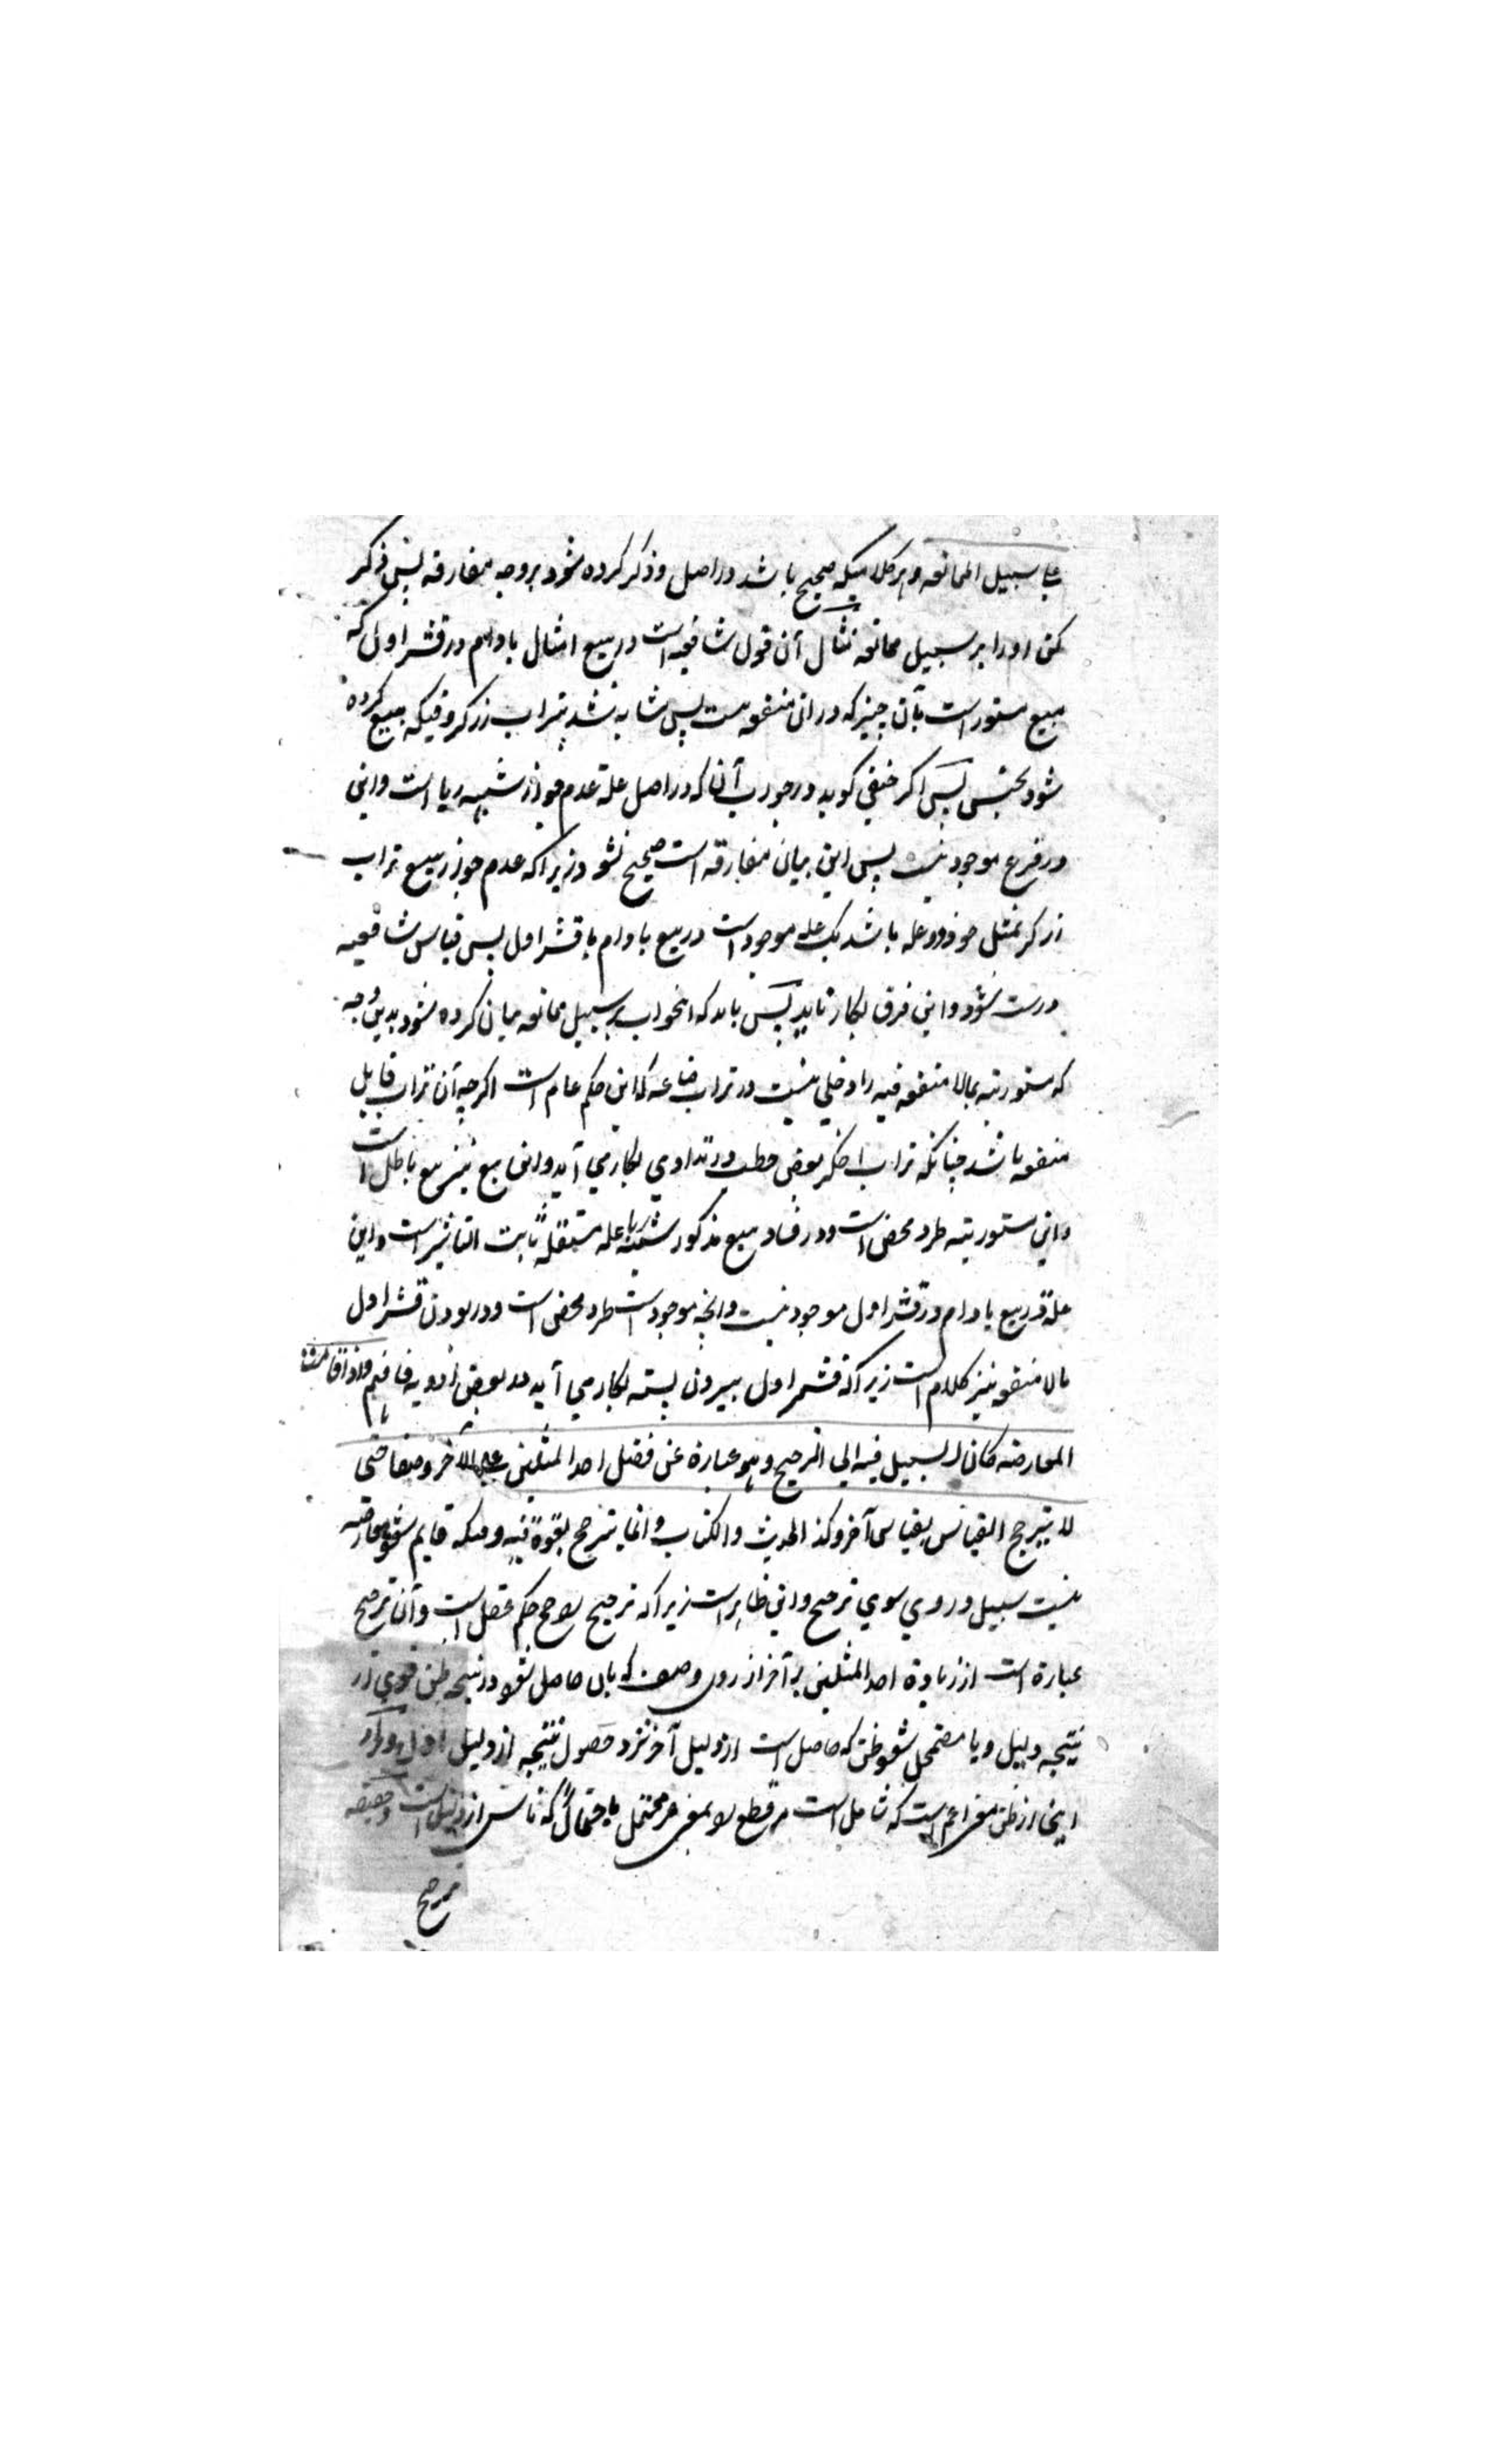 علی سبیل الممانعه و هر کلامیکه صحیح باشد در اصل و ذکر کرده شود بر وجه مفارقه پس ذکر
کن او را بر سبیل ممانعه مثال آن قول شافعیه است در بیع امثال بادام در قشر اول که
مبیع مستور است بآن چیز که در آن منفعه نیست پس مشابه شد بتراب زرگر وقتیکه مبیع کرده
شود بجنس پس اگر حنفی گوید در جواب آن که در اصل علة عدم جواز شبهه ربا است و این
در فرع موجود نیست پس این بیان مفارقه است صحیح نشود زیرا که عدم جواز بیع تراب
زرگر بمثل خود دو علة باشد یک علة موجود است در بیع بادام با قشر اول پس قیاس شافعیه
درست شود و این فرق بکار نآید پس باید که این جواب بر سبیل ممانعه بیان کرده شود بدین وجه
که مستوریته بمالا منفعه فیه را دخلی نیست در تراب که این حکم عام است اگر چه آن تراب قابل
منفعه باشد چنانکه تراب بعضی در تداوی بکار می آید و این بیع نیز بیع باطل است
و این مستوریته طرد محض است و در فساد بیع مذکور شبهه ربا علة مستقله ثابت التاثیر است و این
علة در بیع بادام در قشر اول موجود نیست و آنچه موجود است طرد محض است و در بودن قشر اول
مالا منفعه نیز کلام است زیرا که قشر اول بیرون پسته بکار می آید در بعض ادویه فافهم واذا قامت
المعارضه کان السبیل فیه الی الترجیح و هو عبارة عن فضل احد المثلین علی الآخر وصفا حتی
لا یترجح القیاس بقیاس آخر وکذا الحدیث والکتاب وانما یترجح بقوة فیه وقتیکه قایم شود معارضه
نیست سبیل در وی سوی ترجیح و این ظاهر است زیرا که ترجیح حکم عقل است و آن ترجیح
عبارة است از زیادة احد المثلین بر آخر از روی وصف که بآن حاصل شود در نتیجه ظن قوی تر
نتیجه دلیل و یا مضمحل شود ظن که حاصل است از دلیل آخر نزد حصول نتیجه از دلیل اول و مراد
اینجا از ظن معنی اعم است که شامل است مر قطع را بمعنی غیر محتمل باحتمال که ناشی از دلیل است و حقیقه
ترجیح